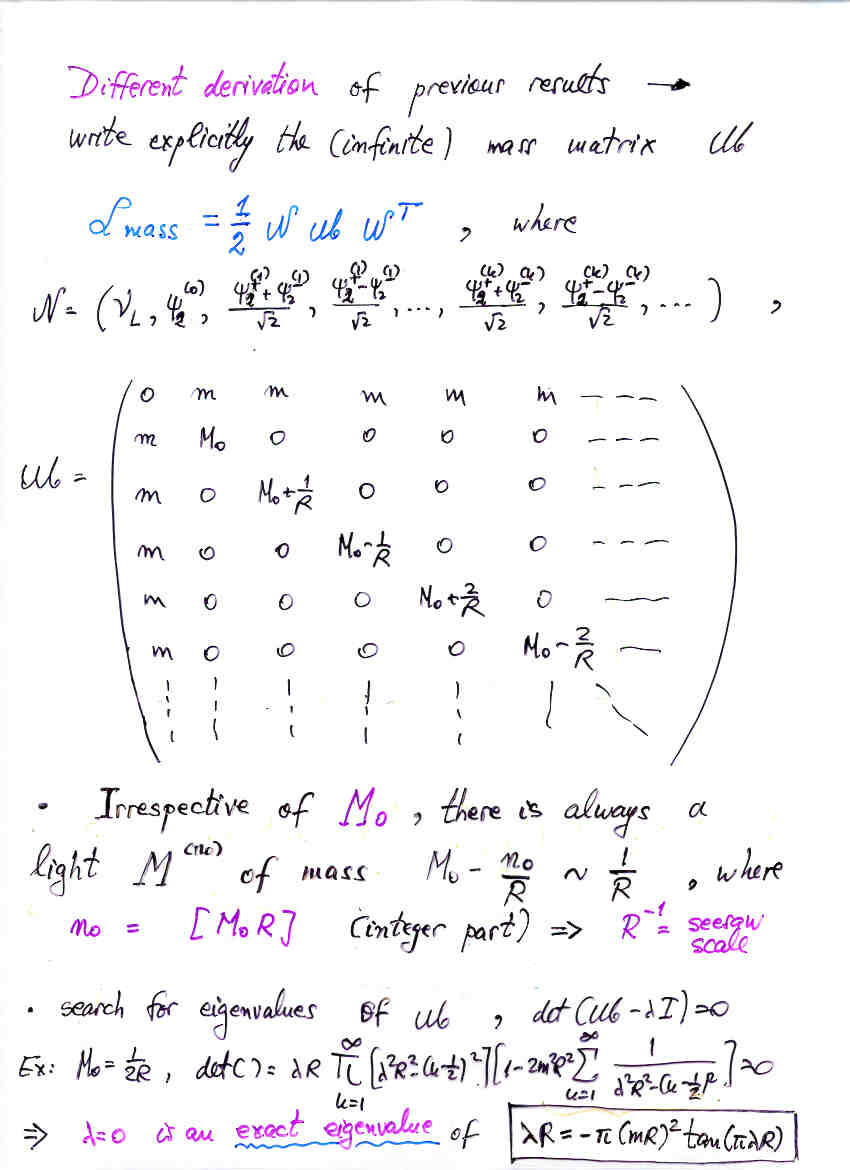 Different derivation of previous results →
write explicitly the (infinite) mass matrix ℳ
ℒ mass = 1/2 𝒩 ℳ 𝒩ᵀ , where
𝒩 = (ν_L, ψ_2^(0), (ψ_2^+(1) + ψ_2^-(1))/√2, (ψ_2^+(1) - ψ_2^-(1))/√2, ..., (ψ_2^+(k) + ψ_2^-(k))/√2, (ψ_2^+(k) - ψ_2^-(k))/√2, ...) ,
0 m m m m m - - -
m M₀ 0 0 0 0 - - -
ℳ =
m 0 M₀+1/R 0 0 0 - - -
m 0 0 M₀-1/R 0 0 - - -
m 0 0 0 M₀+2/R 0 —
m 0 0 0 0 M₀-2/R —
• Irrespective of M₀ , there is always a
light M^(n₀) of mass M₀ - n₀/R ~ 1/R , where
n₀ = [M₀R] (integer part) => R⁻¹ = seesaw scale
• search for eigenvalues of ℳ , det(ℳ-λI)=0
Ex: M₀ = 1/2R , det() = λR ∏_{k=1}^∞ [λ²R²-(k-1/2)²][1-2m²R² ∑_{k=1}^∞ 1/(λ²R²-(k-1/2)²)]=0
=> λ=0 is an exact eigenvalue of λR = -π(mR)² tan(πλR)